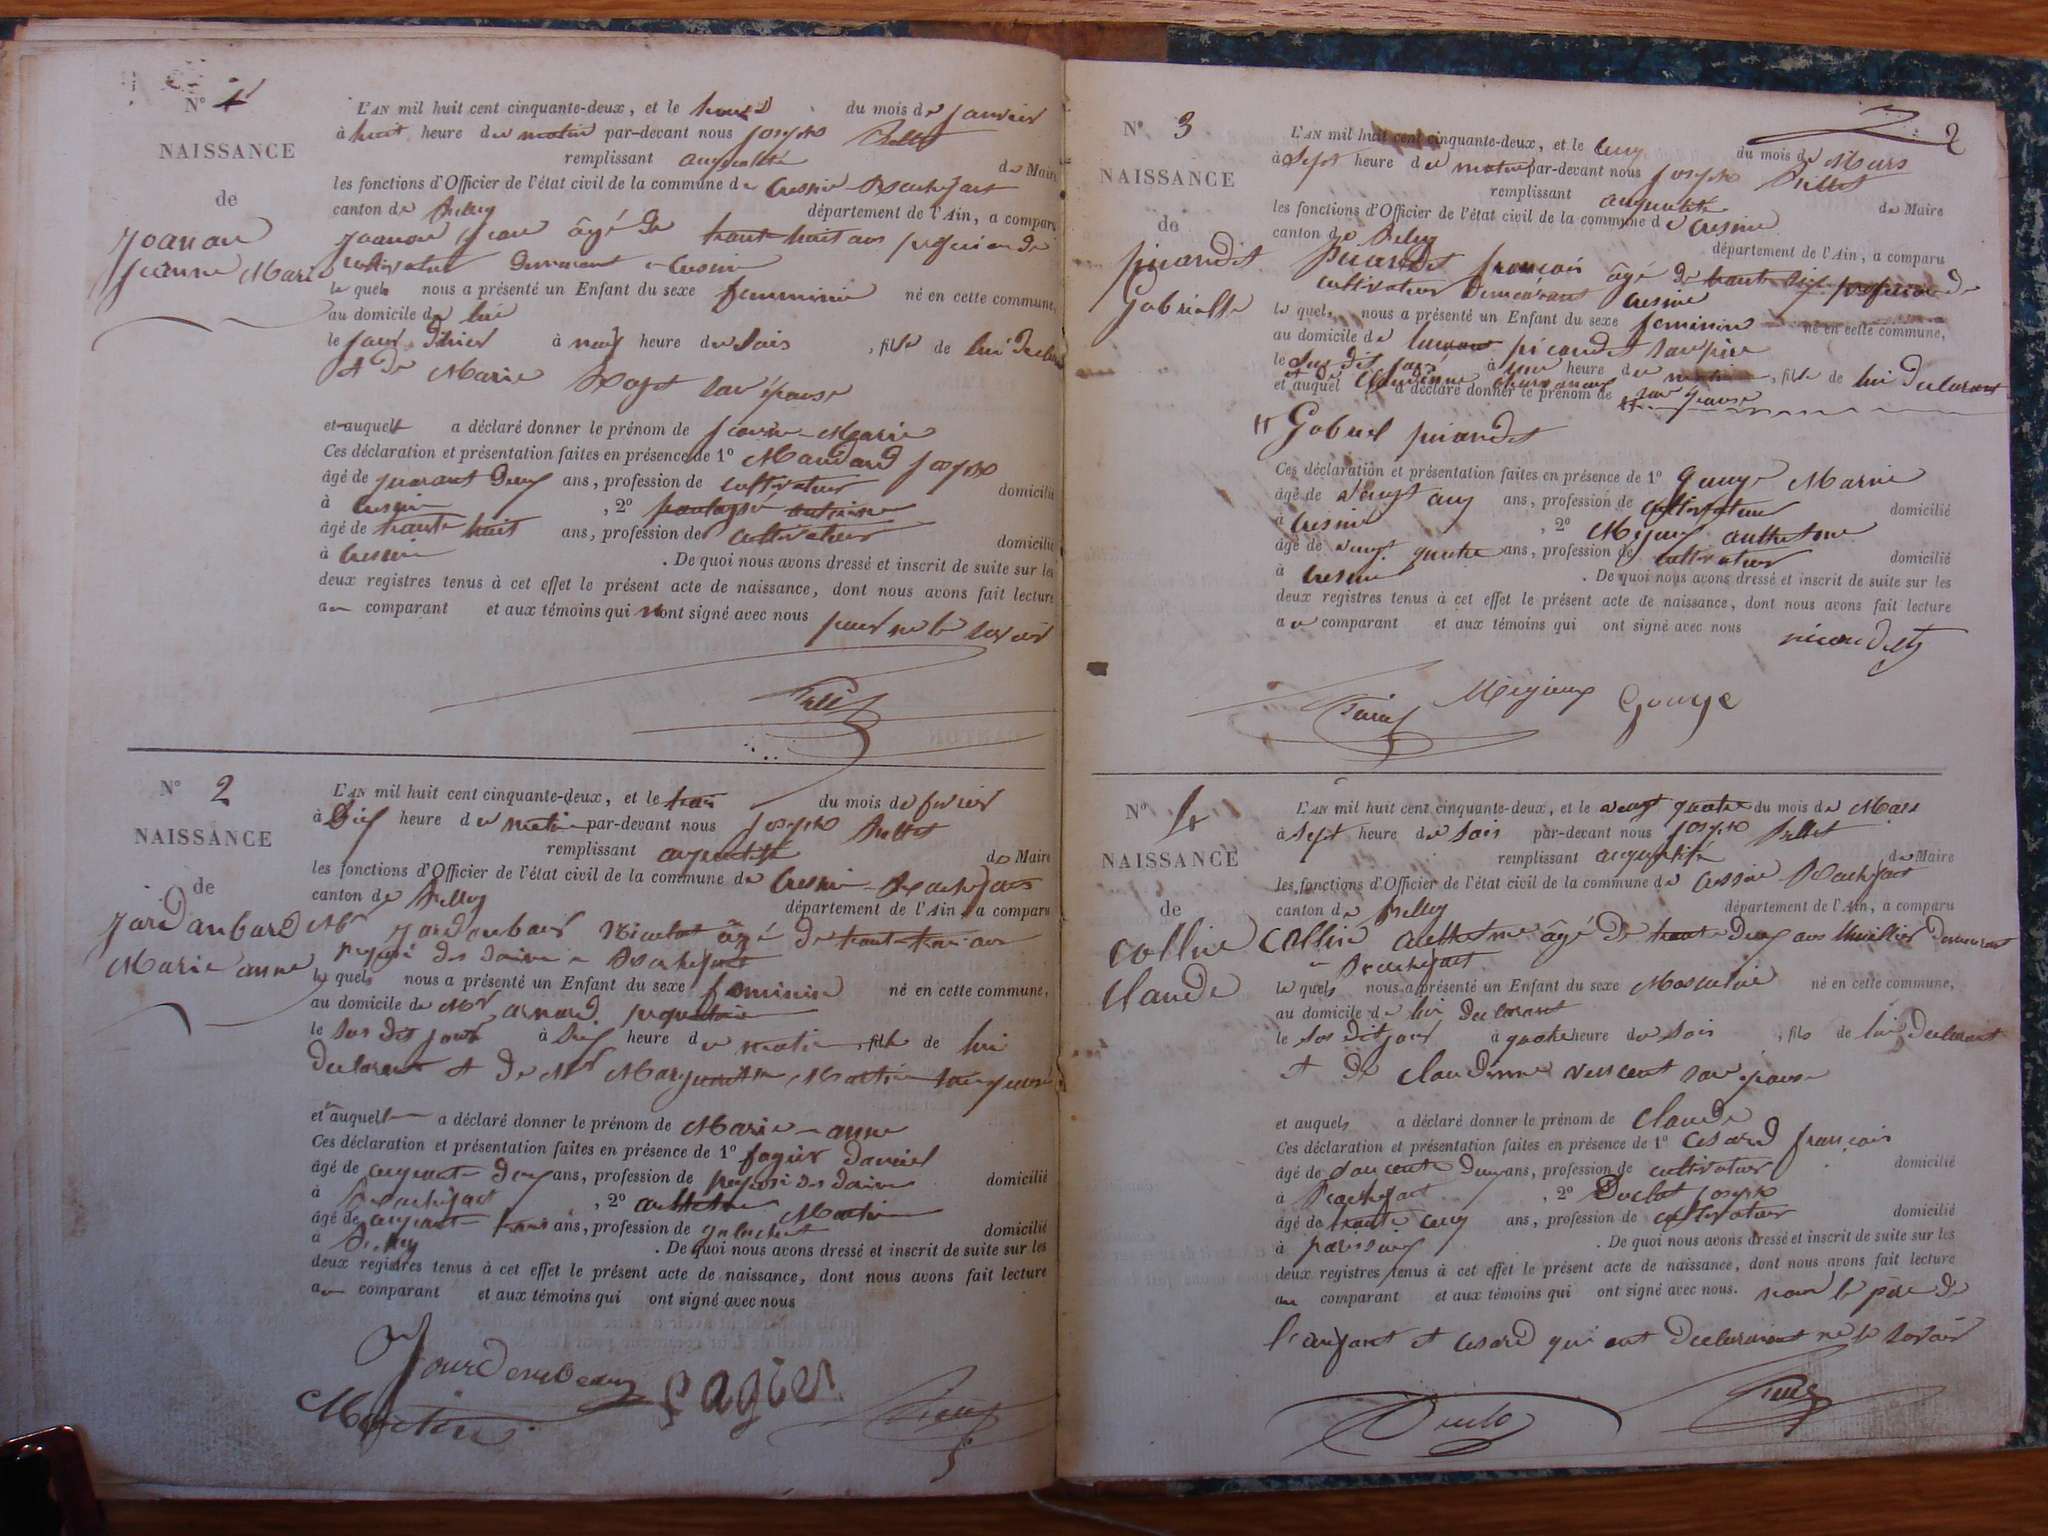 N° 1
NAISSANCE
de
Joanon
Jeanne Marie
L'AN mil huit cent cinquante-deux, et le du mois de janvier
à huit heure du matin par-devant nous joseph
remplissant de Maire
les fonctions d'Officier de l'état civil de la commune de Cressin Rochefort
canton de Belley département de l'Ain, a comparu
Joanon jean âgé de trante huit ans profession de
cultivateur demeurant a Cressin
le quel nous a présenté un Enfant du sexe femminin né en cette commune,
au domicile de lui
le jour d'hier à neuf heure du soir , fille de lui declarant
et de Marie Roget son épouse
et auquel a déclaré donner le prénom de jeanne-Marie
Ces déclaration et présentation faites en présence de 1° joseph
âgé de quarant deux ans, profession de cultivateur domicilié
à Cressin , 2°
âgé de trante huit ans, profession de cultivateur domicilié
à Cressin . De quoi nous avons dressé et inscrit de suite sur les
deux registres tenus à cet effet le présent acte de naissance, dont nous avons fait lecture
au comparant et aux témoins qui n'ont signé avec nous pour ne le savoir
N° 2
NAISSANCE
de
Jordanbard
Marie anne
L'AN mil huit cent cinquante-deux, et le trois du mois de fevrier
à dix heure du matin par-devant nous joseph
remplissant de Maire
les fonctions d'Officier de l'état civil de la commune de Cressin Rochefort
canton de Belley département de l'Ain, a comparu
Mr âgé de trante trois ans
preposé des douane a Rochefort
le quel nous a présenté un Enfant du sexe feminin né en cette commune,
au domicile de Mr
le sus dit jour à six heure du matin , fille de lui
declarant et de Marguerite Martin son epouse
et auquel a déclaré donner le prénom de Marie-anne
Ces déclaration et présentation faites en présence de 1° fagier daniel
âgé de cinquante deux ans, profession de preposé des douane domicilié
à Rochefort , 2° Martin
âgé de ans, profession de domicilié
à Belley . De quoi nous avons dressé et inscrit de suite sur les
deux registres tenus à cet effet le présent acte de naissance, dont nous avons fait lecture
au comparant et aux témoins qui ont signé avec nous
Martin fagier
2
N° 3
NAISSANCE
de
picandet
Gabrielle
L'AN mil huit cent cinquante-deux, et le cinq du mois de Mars
à sept heure du matin par-devant nous joseph
remplissant de Maire
les fonctions d'Officier de l'état civil de la commune de Cressin
canton de Belley département de l'Ain, a comparu
Picandet françois âgé de trante six profession de
cultivateur demeurant Cressin
le quel nous a présenté un Enfant du sexe feminin né en cette commune,
au domicile de picandet son père
le sus dit jour à une heure du matin , fille de lui declarant
et auquel a déclaré donner le prénom de son épouse
Gabriel picandet
Ces déclaration et présentation faites en présence de 1° Gouge Marie
âgé de vingt cinq ans, profession de cultivateur domicilié
à Cressin , 2° Mejeux anthelme
âgé de vingt quatre ans, profession de cultivateur domicilié
à Cressin . De quoi nous avons dressé et inscrit de suite sur les
deux registres tenus à cet effet le présent acte de naissance, dont nous avons fait lecture
au comparant et aux témoins qui ont signé avec nous picandet
Mejeux Gouge
N° 4
NAISSANCE
de
Collin
Claude
L'AN mil huit cent cinquante-deux, et le vingt quatre du mois de Mars
à sept heure du soir par-devant nous joseph
remplissant de Maire
les fonctions d'Officier de l'état civil de la commune de Cressin Rochefort
canton de Belley département de l'Ain, a comparu
Collin anthelme âgé de trante deux ans demeurant
a Rochefort
le quel nous a présenté un Enfant du sexe Masculin né en cette commune,
au domicile de lui declarant
le sus dit jour à quatre heure du soir , fils de lui declarant
et de claudinne vincent son épouse
et auquel a déclaré donner le prénom de Claude
Ces déclaration et présentation faites en présence de 1° Cesard françois
âgé de soixante deux ans, profession de cultivateur domicilié
à Rochefort , 2° Duclot joseph
âgé de trante cinq ans, profession de cultivateur domicilié
à parissieux . De quoi nous avons dressé et inscrit de suite sur les
deux registres tenus à cet effet le présent acte de naissance, dont nous avons fait lecture
au comparant et aux témoins qui ont signé avec nous. non le père de
l'anfant et Cesard qui ont declarant ne le savoir
Duclo